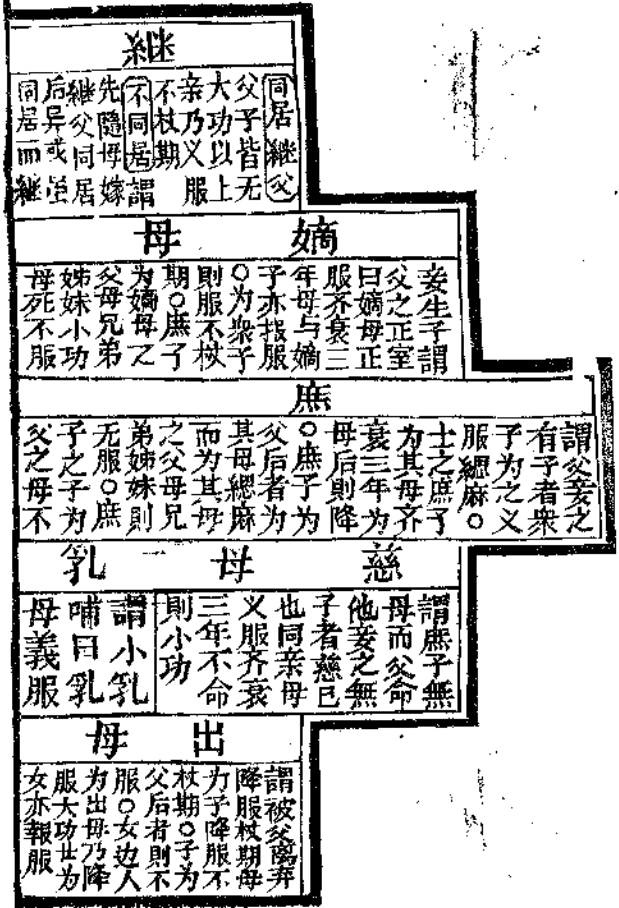 継
同居継父
父子皆无
大功以上
亲乃义服
不杖期
不同居謂
先隨母嫁
継父同居
后异或虽
同居而継
嫡母
妾生子謂
父之正室
曰嫡母正
服齐衰三
年母与嫡
子亦报服
○为衆子
則服不杖
期○庶子
为嫡母之
父母兄弟
姊妹小功
母死不服
庶
謂父妾之
有子者衆
子为之义
服緦麻○
士之庶子
为其母齐
衰三年为
母后則降
○庶子为
父后者为
其母緦麻
而为其母
之父母兄
弟姊妹則
无服○庶
子之子为
父之母不
慈母
謂庶子無
母而父命
他妾之無
子者慈己
也同亲母
义服齐衰
三年不命
則小功
乳
謂小乳
哺曰乳
母義服
出母
謂被父离弃
降服杖期母
为子降服不
杖期○子为
父后者則不
服○女边人
为出母乃降
服大功廿为
女亦報服